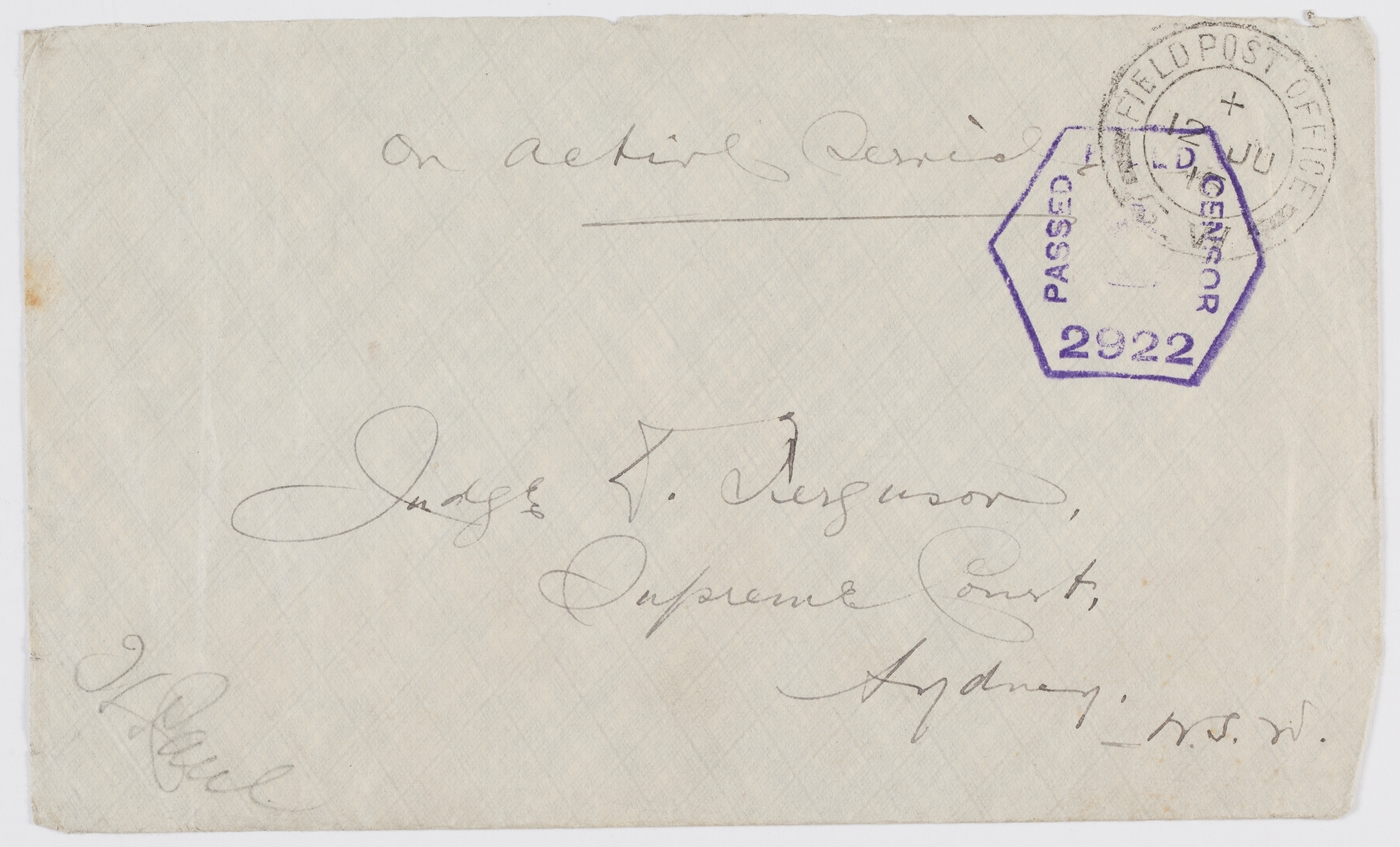 On active Service
FIELD POST OFFICE
12 JU
PASSED
CENSOR
2922
Judge D. Ferguson,
Supreme Court,
Sydney.
N.S.W.